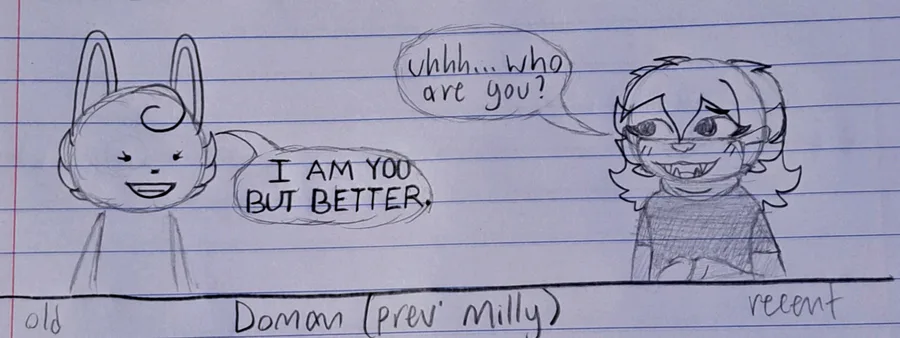 uhhh... who
are you?
I AM YOU
BUT BETTER.
old
Doman (prev' Milly)
recent